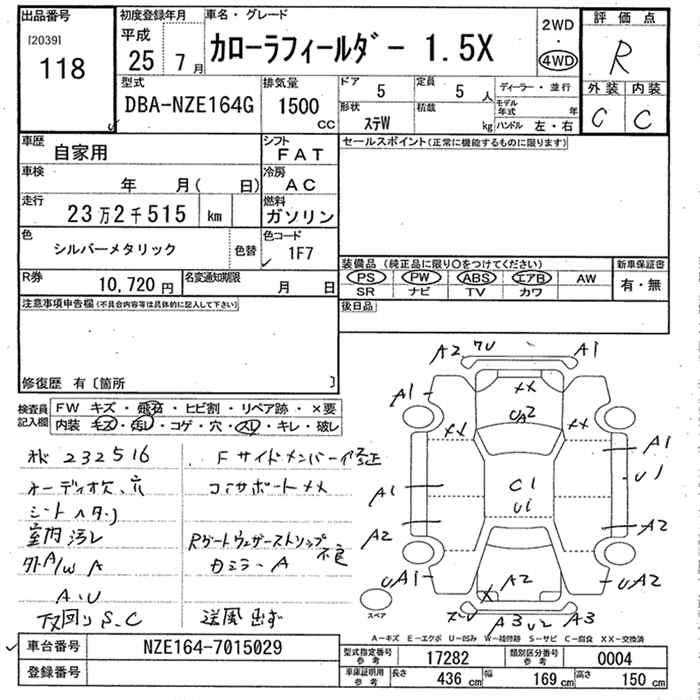 出品番号
[2039]
118
初度登録年月
平成
25年7月
車名・グレード
カローラフィールダー 1.5X
2WD
・
4WD
評価点
R
外装 内装
C C
型式
DBA-NZE164G
排気量
1500
cc
ドア
5
定員
5人
形状
ステW
積載
kg
ディーラー・並行
モデル年式 年
ハンドル 左・右
車歴
自家用
シフト
FAT
車検
年 月( 日)
冷房
AC
走行
23万2千515 km
燃料
ガソリン
色
シルバーメタリック
色替
色コード
1F7
R券
10,720円
名変通知期限
月 日
セールスポイント(正常に機能するものに限ります)
装備品 (純正品に限り○をつけてください)
PS PW ABS エアB AW
SR ナビ TV カワ
新車保証書
有・無
後日品
注意事項申告欄(不具合内容等は具体的に記入して下さい)
修復歴 有〔箇所 〕
検査員記入欄
FW キズ・飛石・ヒビ割・リペア跡・×要
内装 キズ・汚レ・コゲ・穴・スレ・キレ・破レ
232516
Fサイドメンバー修正
オーディオ欠、穴
コアサポートメメ
シートヘタリ
室内汚レ
Rゲートウェザーストリップ不良
外A/W A
カミラーA
A・U
下回りS、C
送風出ず
A2 フU A1
A1
XX
UA2
XX XX
A1
U1
A1
C1
U1
A2
A2
UA1
A2
UA2
X
スペア
A3 U2 A3
A-キズ E-エクボ U-凹み W-補修跡 S-サビ C-腐食 XX-交換済
車台番号
NZE164-7015029
登録番号
型式指定番号参考
17282
類別区分番号参考
0004
車庫証明用参考
長さ 436 cm
幅 169 cm
高さ 150 cm